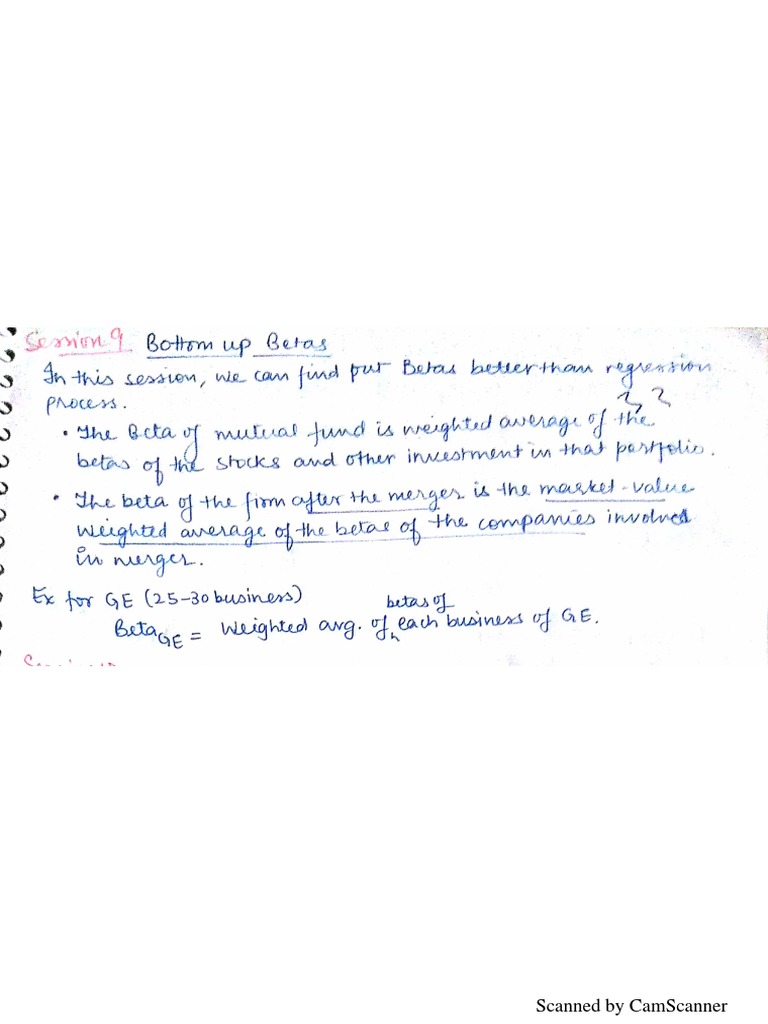 Session 9 Bottom up Betas
In this session, we can find put Betas better than regression
process.
• The Beta of mutual fund is weighted average of the
betas of the stocks and other investment in that portfolio.
• The beta of the firm after the merger is the market-value
weighted average of the betas of the companies involved
in merger.
Ex for GE (25-30 business)
betas of
BetaGE = Weighted avg. of each business of GE.
Scanned by CamScanner